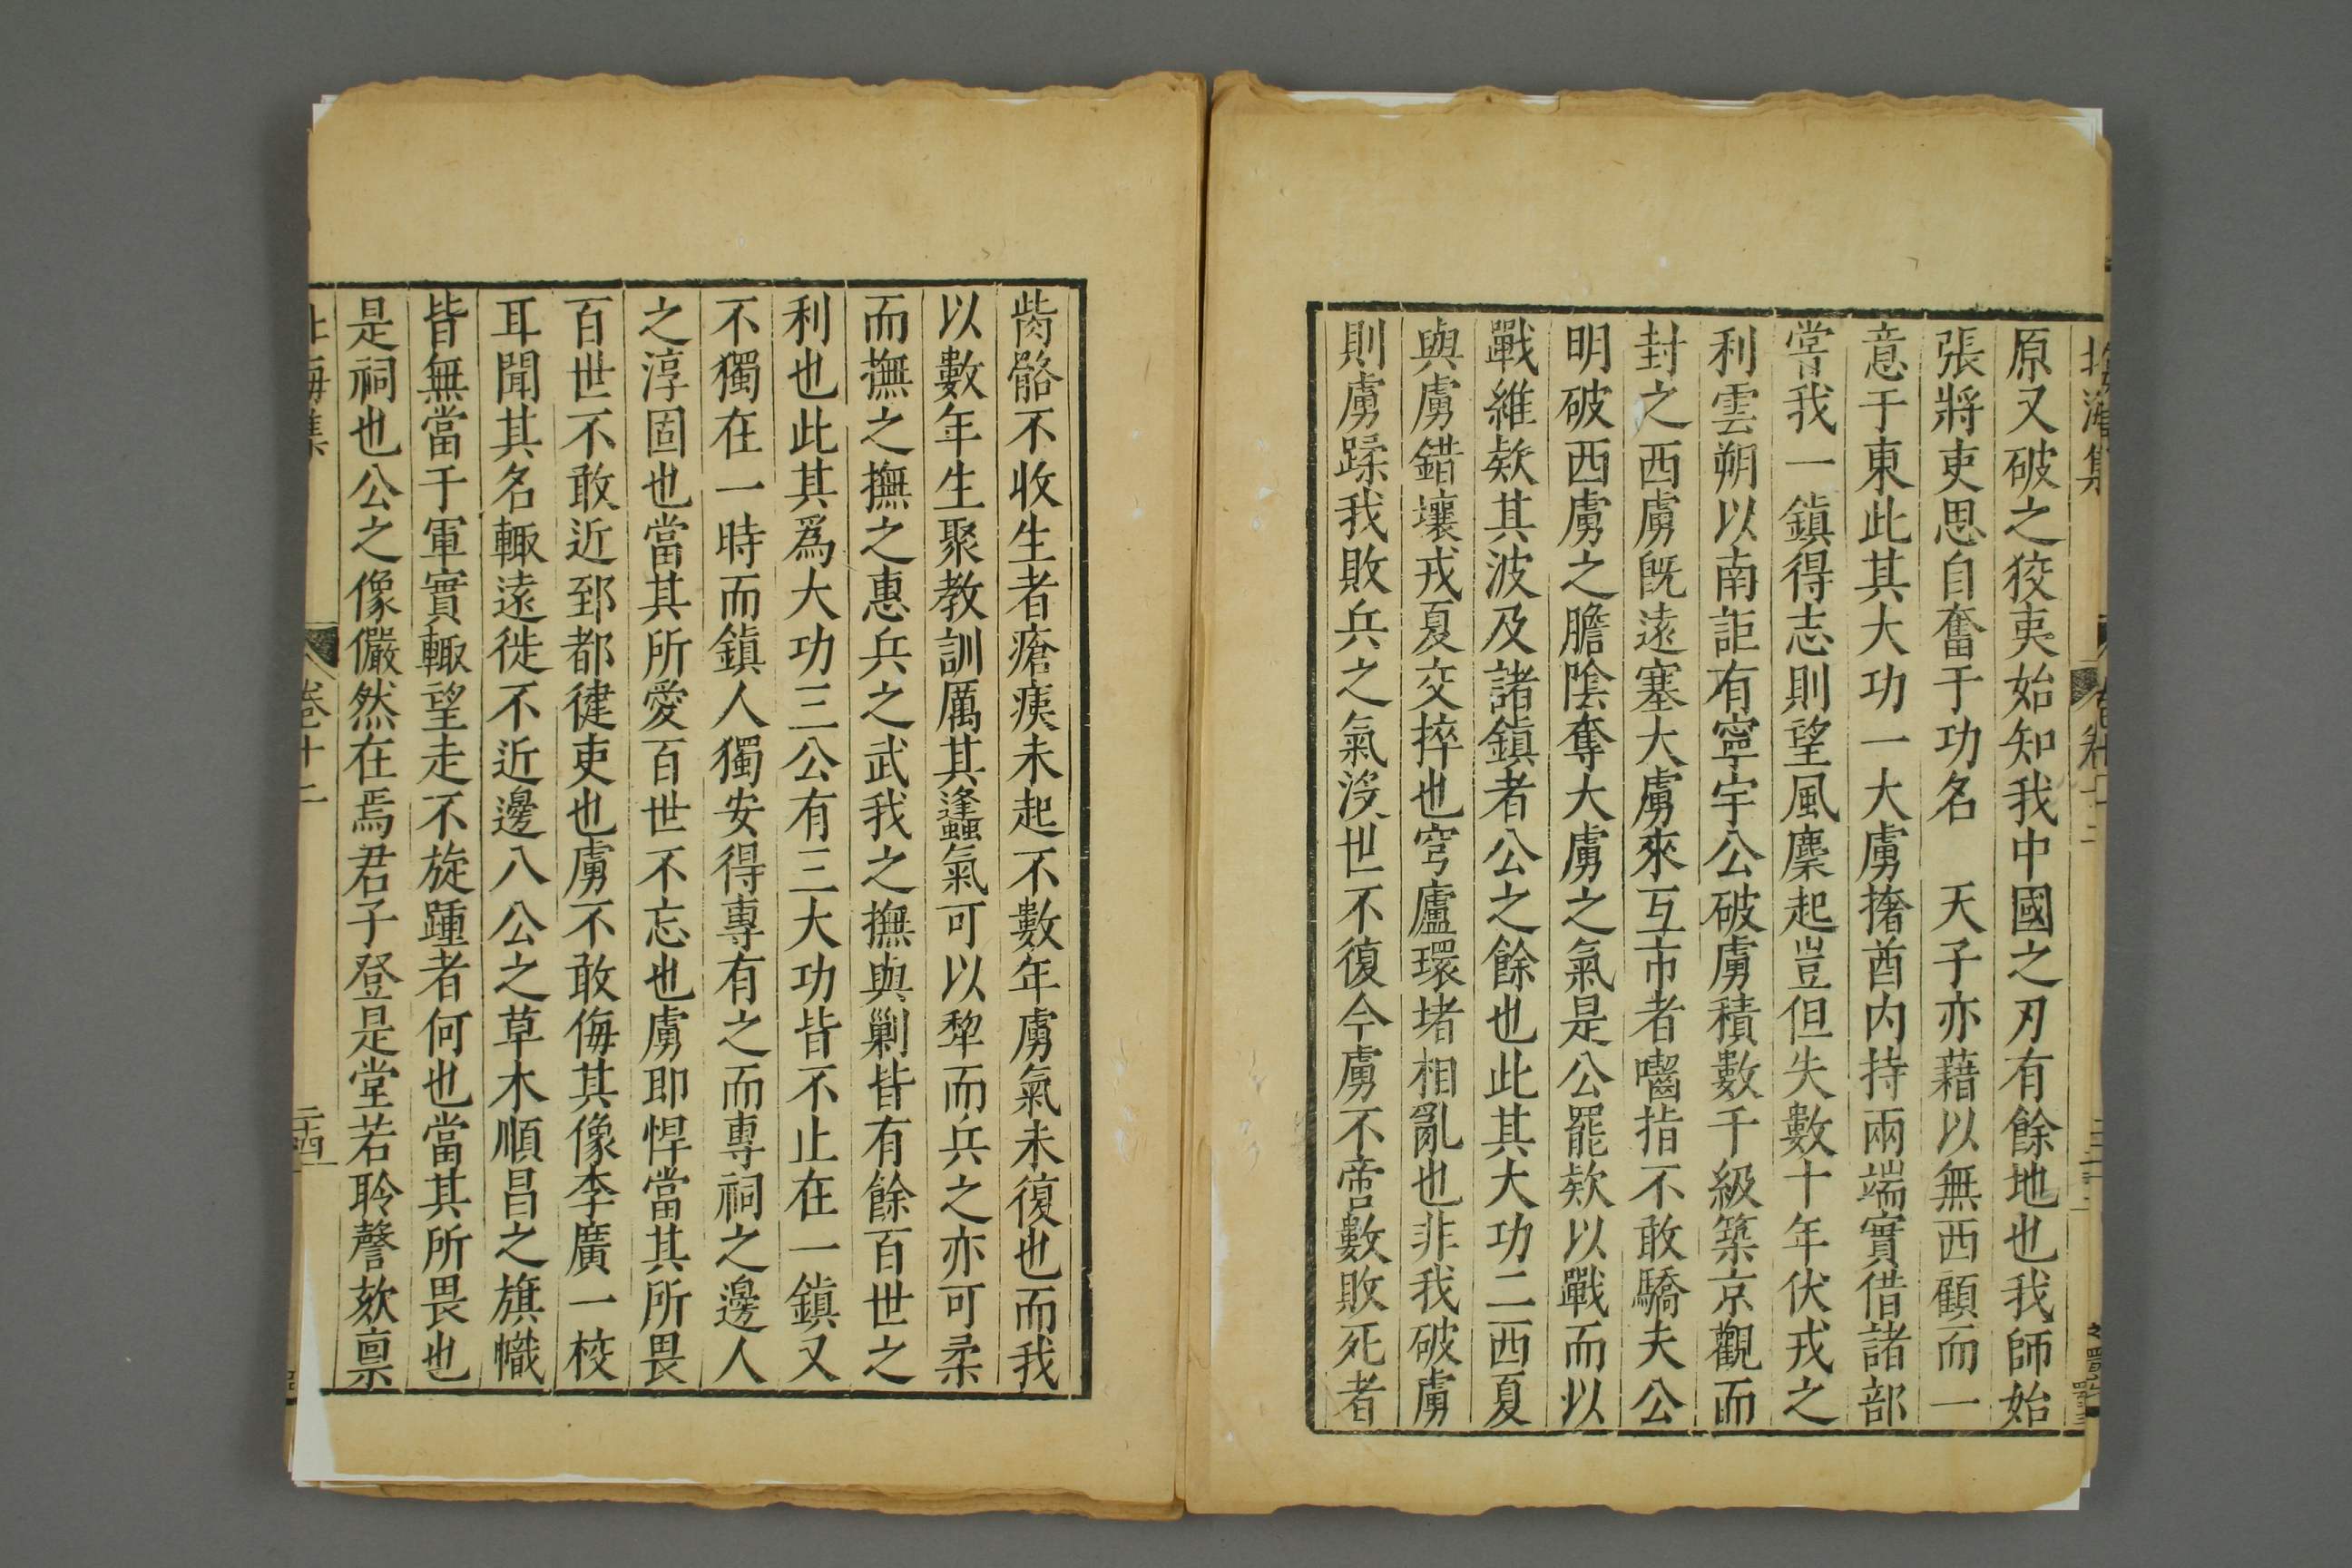 北海集
原又破之狡夷始知我中國之刃有餘地也我師始
張將吏思自奮于功名　天子亦藉以無西顧而一
意于東此其大功一大虜撦酋内持兩端實借諸部
嘗我一鎮得志則望風麇起豈但失數十年伏戎之
利雲朔以南詎有寧宇公破虜積數千級築京觀而
封之西虜旣遠塞大虜來互市者嚙指不敢驕夫公
明破西虜之膽陰奪大虜之氣是公罷欵以戰而以
戰維欵其波及諸鎮者公之餘也此其大功二西夏
與虜錯壤戎夏交捽也穹廬環堵相亂也非我破虜
則虜蹂我敗兵之氣沒世不復今虜不啻數敗死者
胔骼不收生者瘡痍未起不數年虜氣未復也而我
以數年生聚教訓厲其蠭氣可以犂而兵之亦可柔
而撫之撫之惠兵之武我之撫與剿皆有餘百世之
利也此其爲大功三公有三大功皆不止在一鎮又
不獨在一時而鎮人獨安得專有之而專祠之邊人
之淳固也當其所愛百世不忘也虜即悍當其所畏
百世不敢近郅都徤吏也虜不敢侮其像李廣一校
耳聞其名輙遠徙不近邊八公之草木順昌之旗幟
皆無當于軍實輙望走不旋踵者何也當其所畏也
是祠也公之像儼然在焉君子登是堂若聆謦欬稟
北海集
卷十二
二十四